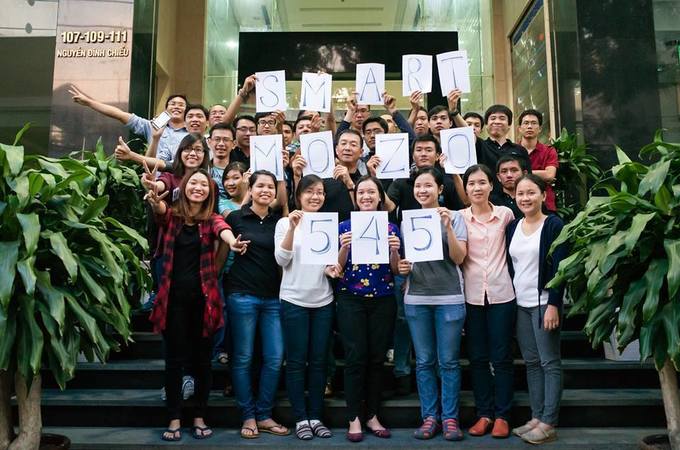 107-109-111
NGUYỄN ĐÌNH CHIỂU
SMART
MOZO
545